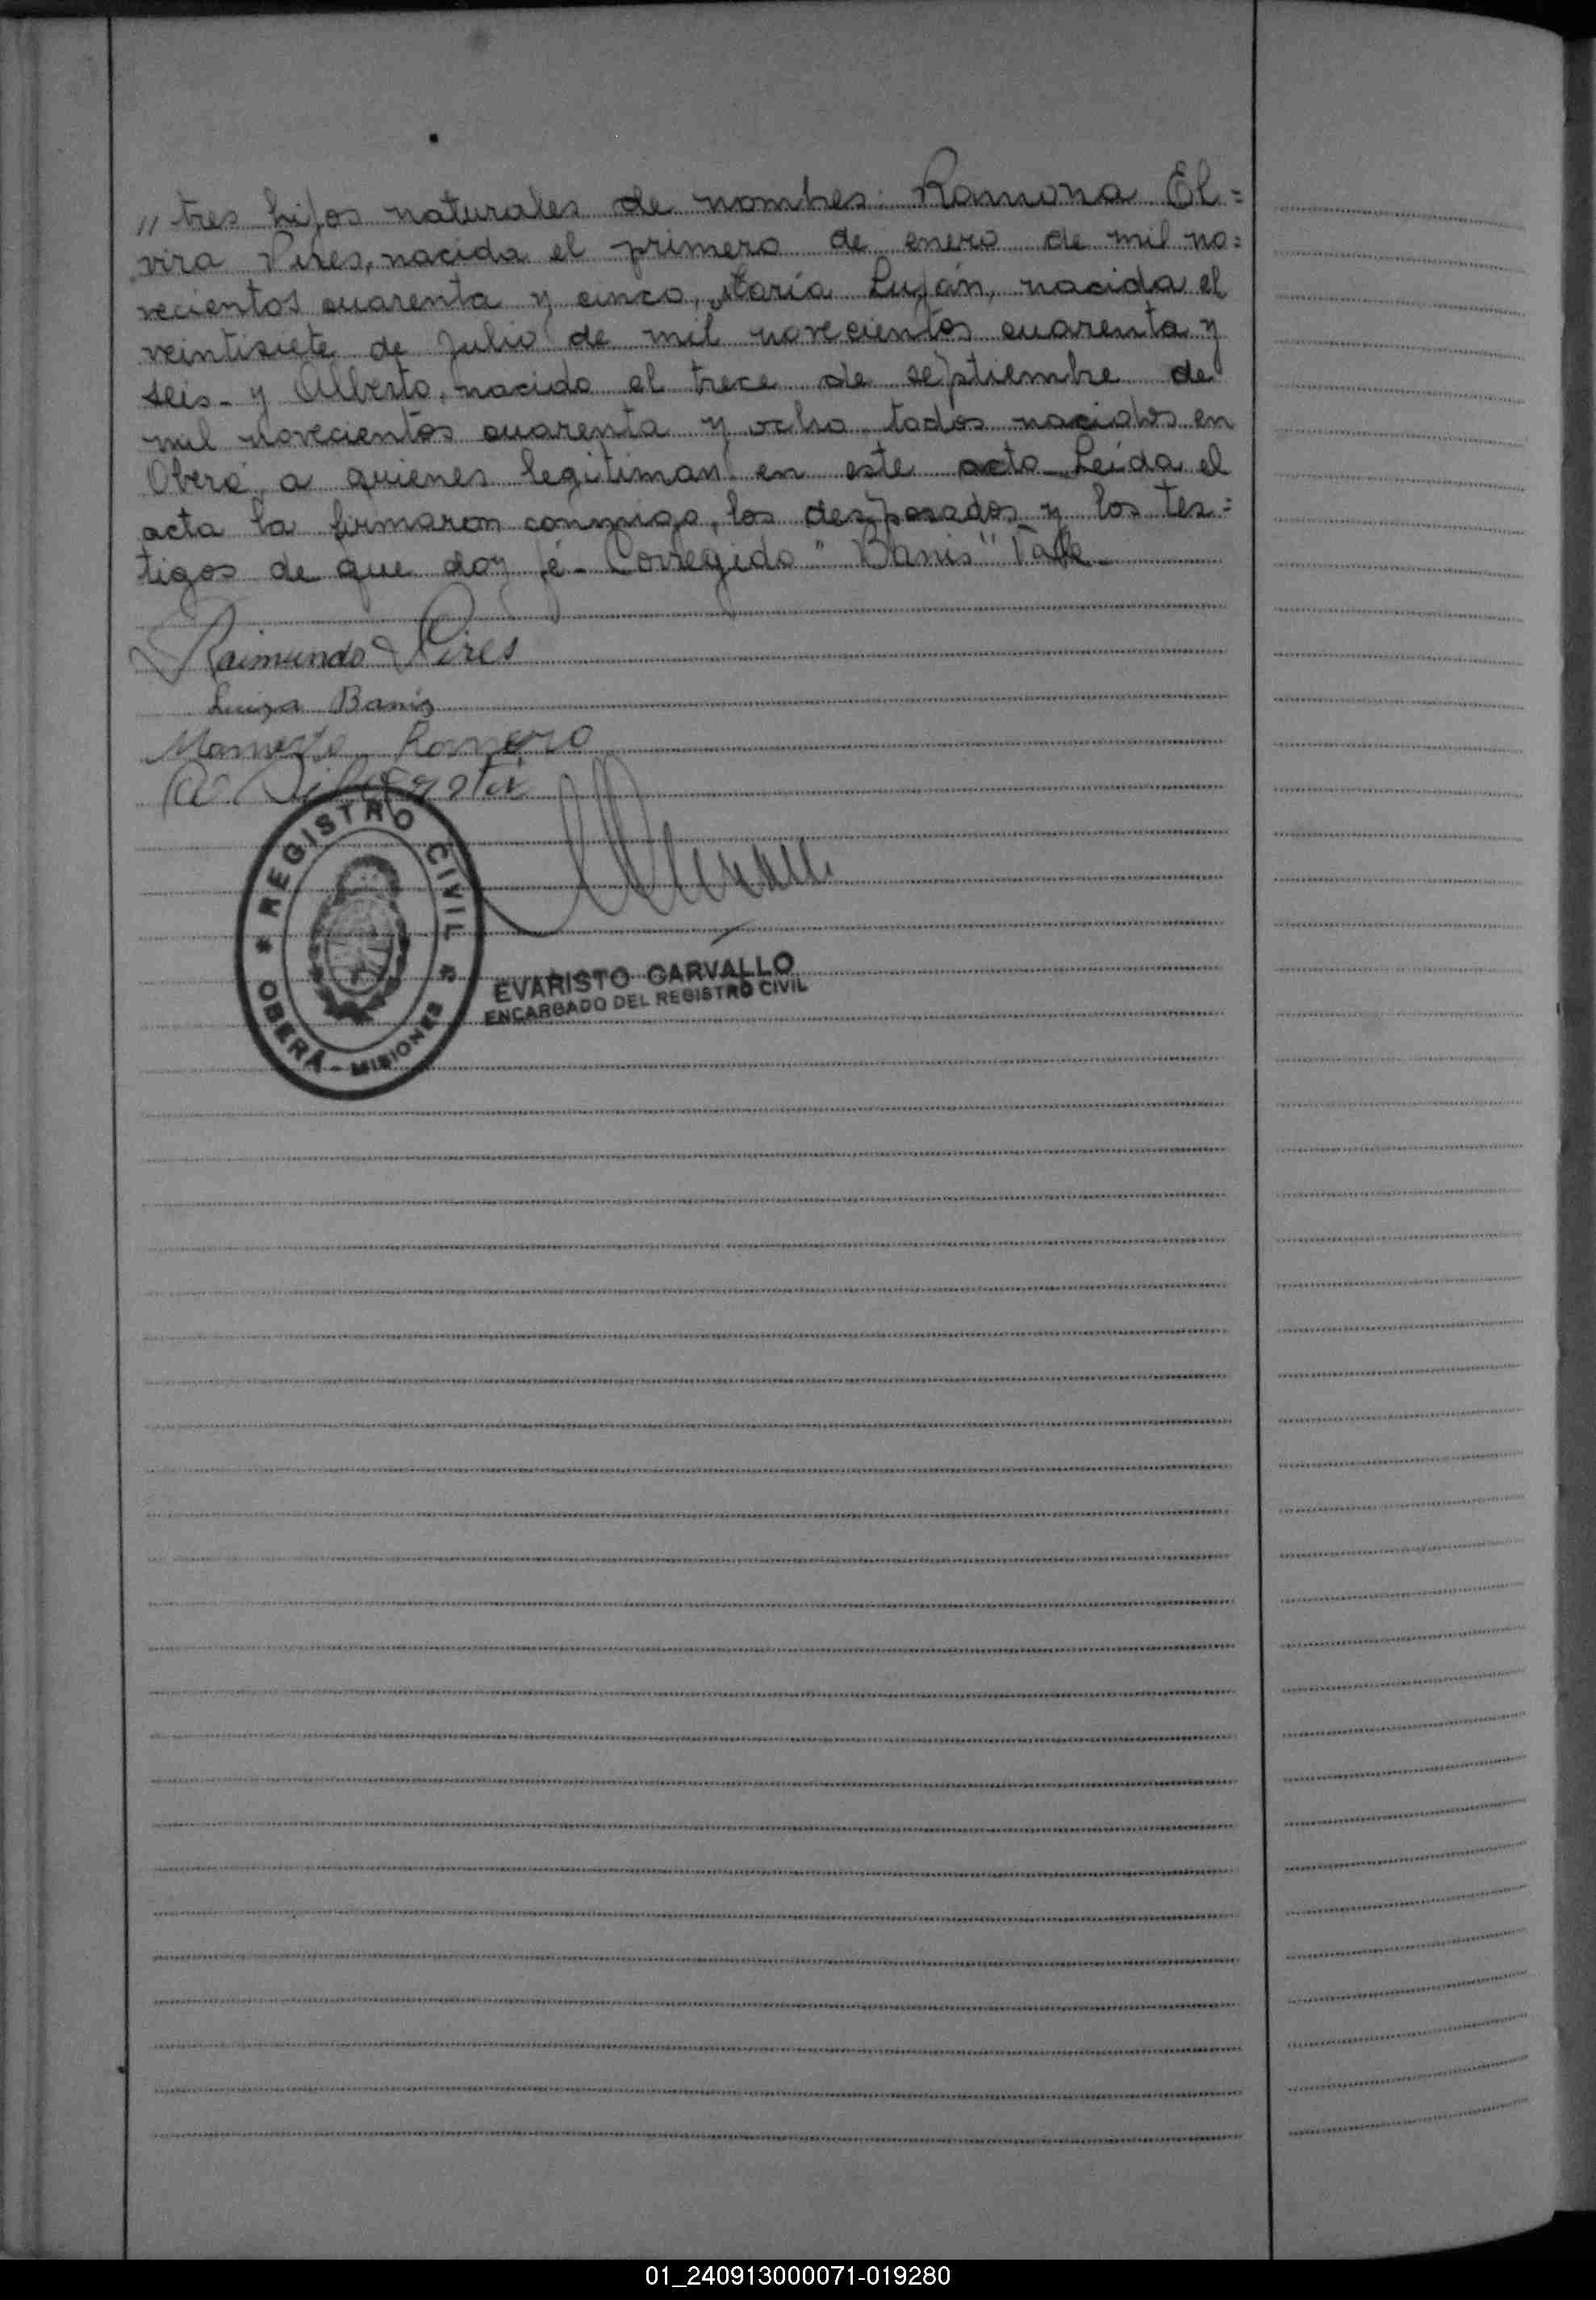 " tres hijos naturales de nombres: Ramona El=
vira Pires, nacida el primero de enero de mil no=
vecientos cuarenta y cinco, María Luján, nacida el
veintisiete de Julio de mil novecientos cuarenta y
seis - y Alberto, nacido el trece de septiembre de
mil novecientos cuarenta y ocho todos nacidos en
Oberá, a quienes legitiman en este acto - Leída el
acta la firmaron conmigo, los desposados y los tes=
tigos de que doy fé - Corregido "Banis" Vale -
Raimundo Pires
Luiza Banis
Romero
REGISTRO CIVIL
OBERÁ - MISIONES
EVARISTO CARVALLO
ENCARGADO DEL REGISTRO CIVIL
01_240913000071-019280